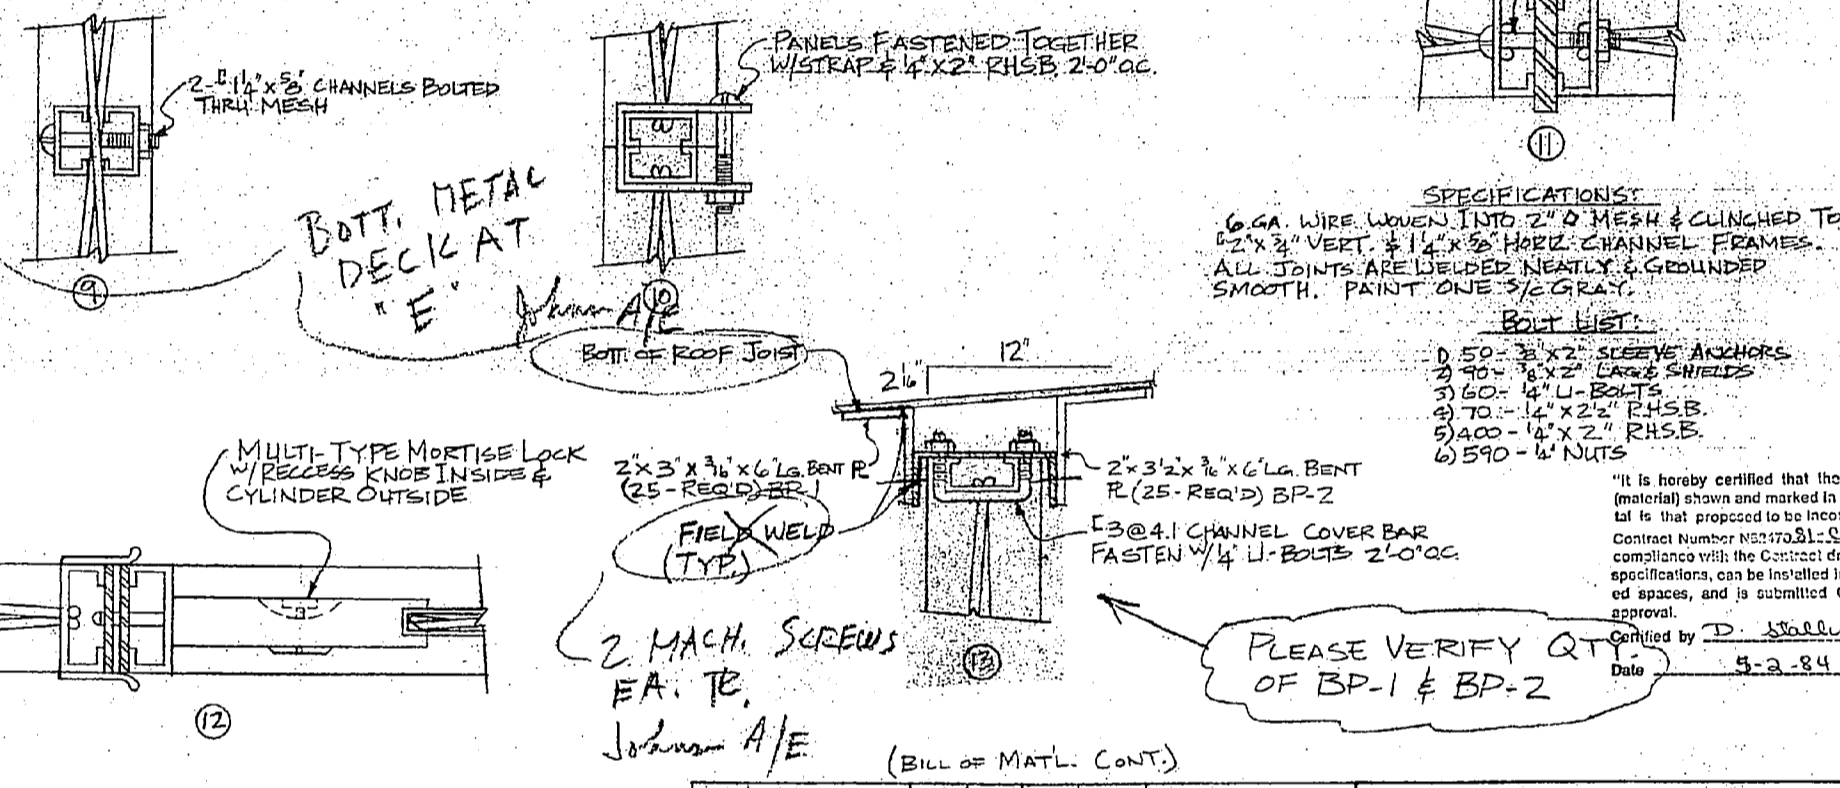 2-[ 1¼" x ⅝" CHANNELS BOLTED
THRU MESH
9
PANELS FASTENED TOGETHER
W/STRAP & ¼" X 2" RHSB. 2'-0" O.C.
10
11
BOTT. METAL
DECK AT
"E"
A/E
BOTT. OF ROOF JOIST
SPECIFICATIONS:
6 GA. WIRE WOVEN INTO 2" ◊ MESH & CLINCHED TO
[2" x ¾" VERT. & 1¼" x ⅝" HORIZ. CHANNEL FRAMES.
ALL JOINTS ARE WELDED NEATLY & GROUNDED
SMOOTH. PAINT ONE S/C GRAY.
BOLT LIST:
1) 50 - ⅜" X 2" SLEEVE ANCHORS
2) 90 - ⅜" X 2" LAG & SHIELDS
3) 60 - ¼" U-BOLTS
4) 70 - ¼" X 2½" R.H.S.B.
5) 400 - ¼" X 2" RHS.B.
6) 590 - ¼" NUTS
12"
MULTI-TYPE MORTISE LOCK
W/RECCESS KNOB INSIDE &
CYLINDER OUTSIDE
12
2" x 3" x 3/16" x 6" LG. BENT PL
(25-REQ'D) BP-1
FIELD WELD
(TYP.)
2 MACH. SCREWS
EA. PL.
A/E
2" x 3½" x 3/16" x 6" LG. BENT
PL (25-REQ'D) BP-2
[3@4.1 CHANNEL COVER BAR
FASTEN W/ ¼" U-BOLTS 2'-0" O.C.
13
PLEASE VERIFY QTY.
OF BP-1 & BP-2
"It is hereby certified that the
(material) shown and marked in
tal is that proposed to be incor
Contract Number N62470-81-C
compliance with the Contract dr
specifications, can be installed i
ed spaces, and is submitted
approval.
Certified by D.
Date 5-2-84
(BILL OF MAT'L. CONT.)